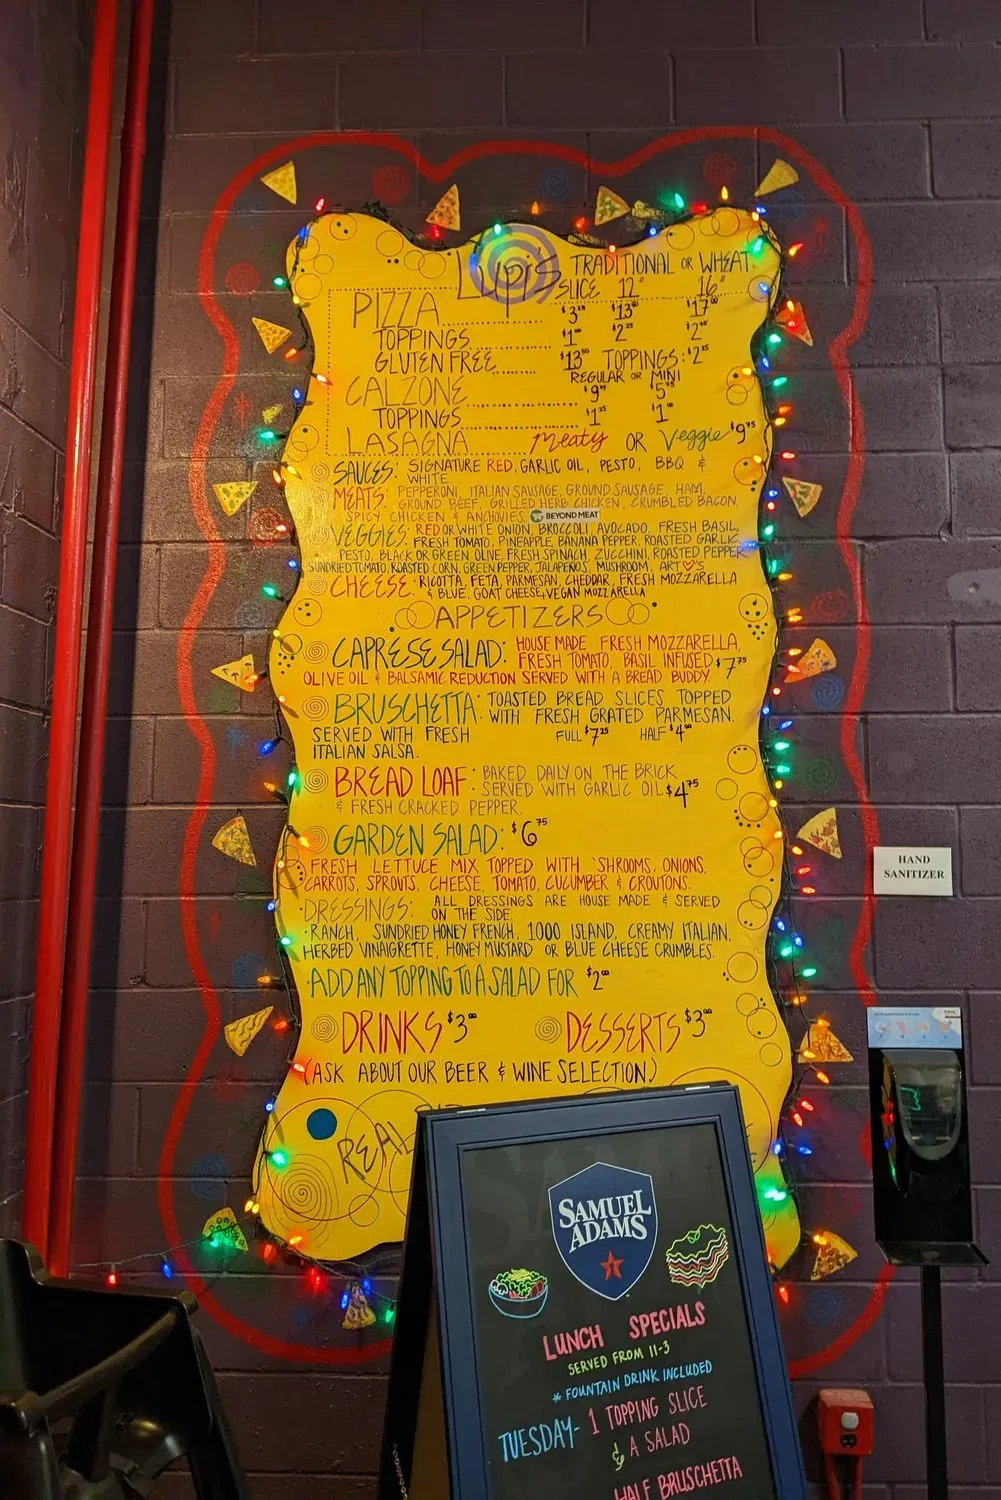 Lupi's TRADITIONAL OR WHEAT
SLICE 12" 16"
PIZZA $13⁰⁰ $17⁰⁰
TOPPINGS $1⁰⁰ $2²⁵
GLUTEN FREE TOPPINGS: $2²⁵
REGULAR OR MINI
CALZONE
TOPPINGS $1²⁵ $1⁰⁰
LASAGNA Meaty OR Veggie $9⁹⁵
SAUCES: SIGNATURE RED, GARLIC OIL, PESTO, BBQ &
WHITE
MEATS: PEPPERONI, ITALIAN SAUSAGE, GROUND SAUSAGE, HAM,
GROUND BEEF, GRILLED HERB CHICKEN, CRUMBLED BACON,
SPICY CHICKEN & ANCHOVIES. BEYOND MEAT
VEGGIES: RED OR WHITE ONION, BROCCOLI, AVOCADO, FRESH BASIL,
FRESH TOMATO, PINEAPPLE, BANANA PEPPER, ROASTED GARLIC,
PESTO, BLACK OR GREEN OLIVE, FRESH SPINACH, ZUCCHINI, ROASTED PEPPER
SUNDRIED TOMATO, ROASTED CORN, GREEN PEPPER, JALAPEÑOS, MUSHROOM, ART♡'S
CHEESE: RICOTTA, FETA, PARMESAN, CHEDDAR, FRESH MOZZARELLA
& BLUE, GOAT CHEESE, VEGAN MOZZARELLA
APPETIZERS
CAPRESE SALAD: HOUSE MADE FRESH MOZZARELLA,
FRESH TOMATO, BASIL INFUSED $7⁷⁵
OLIVE OIL & BALSAMIC REDUCTION SERVED WITH A BREAD BUDDY.
BRUSCHETTA: TOASTED BREAD SLICES TOPPED
WITH FRESH GRATED PARMESAN.
SERVED WITH FRESH FULL $7²⁵ HALF $4⁰⁰
ITALIAN SALSA.
BREAD LOAF: BAKED DAILY ON THE BRICK
SERVED WITH GARLIC OIL $4⁷⁵
& FRESH CRACKED PEPPER.
GARDEN SALAD: $6⁷⁵
FRESH LETTUCE MIX TOPPED WITH 'SHROOMS, ONIONS,
CARROTS, SPROUTS, CHEESE, TOMATO, CUCUMBER & CROUTONS.
DRESSINGS: ALL DRESSINGS ARE HOUSE MADE & SERVED
ON THE SIDE.
RANCH, SUNDRIED HONEY FRENCH, 1000 ISLAND, CREAMY ITALIAN,
HERBED VINAIGRETTE, HONEY MUSTARD OR BLUE CHEESE CRUMBLES.
ADD ANY TOPPING TO A SALAD FOR $2⁰⁰
DRINKS $3⁰⁰ DESSERTS $3⁰⁰
(ASK ABOUT OUR BEER & WINE SELECTION.)
REAL
HAND
SANITIZER
SAMUEL
ADAMS
LUNCH SPECIALS
SERVED FROM 11-3
* FOUNTAIN DRINK INCLUDED
TUESDAY- 1 TOPPING SLICE
& A SALAD
HALF BRUSCHETTA